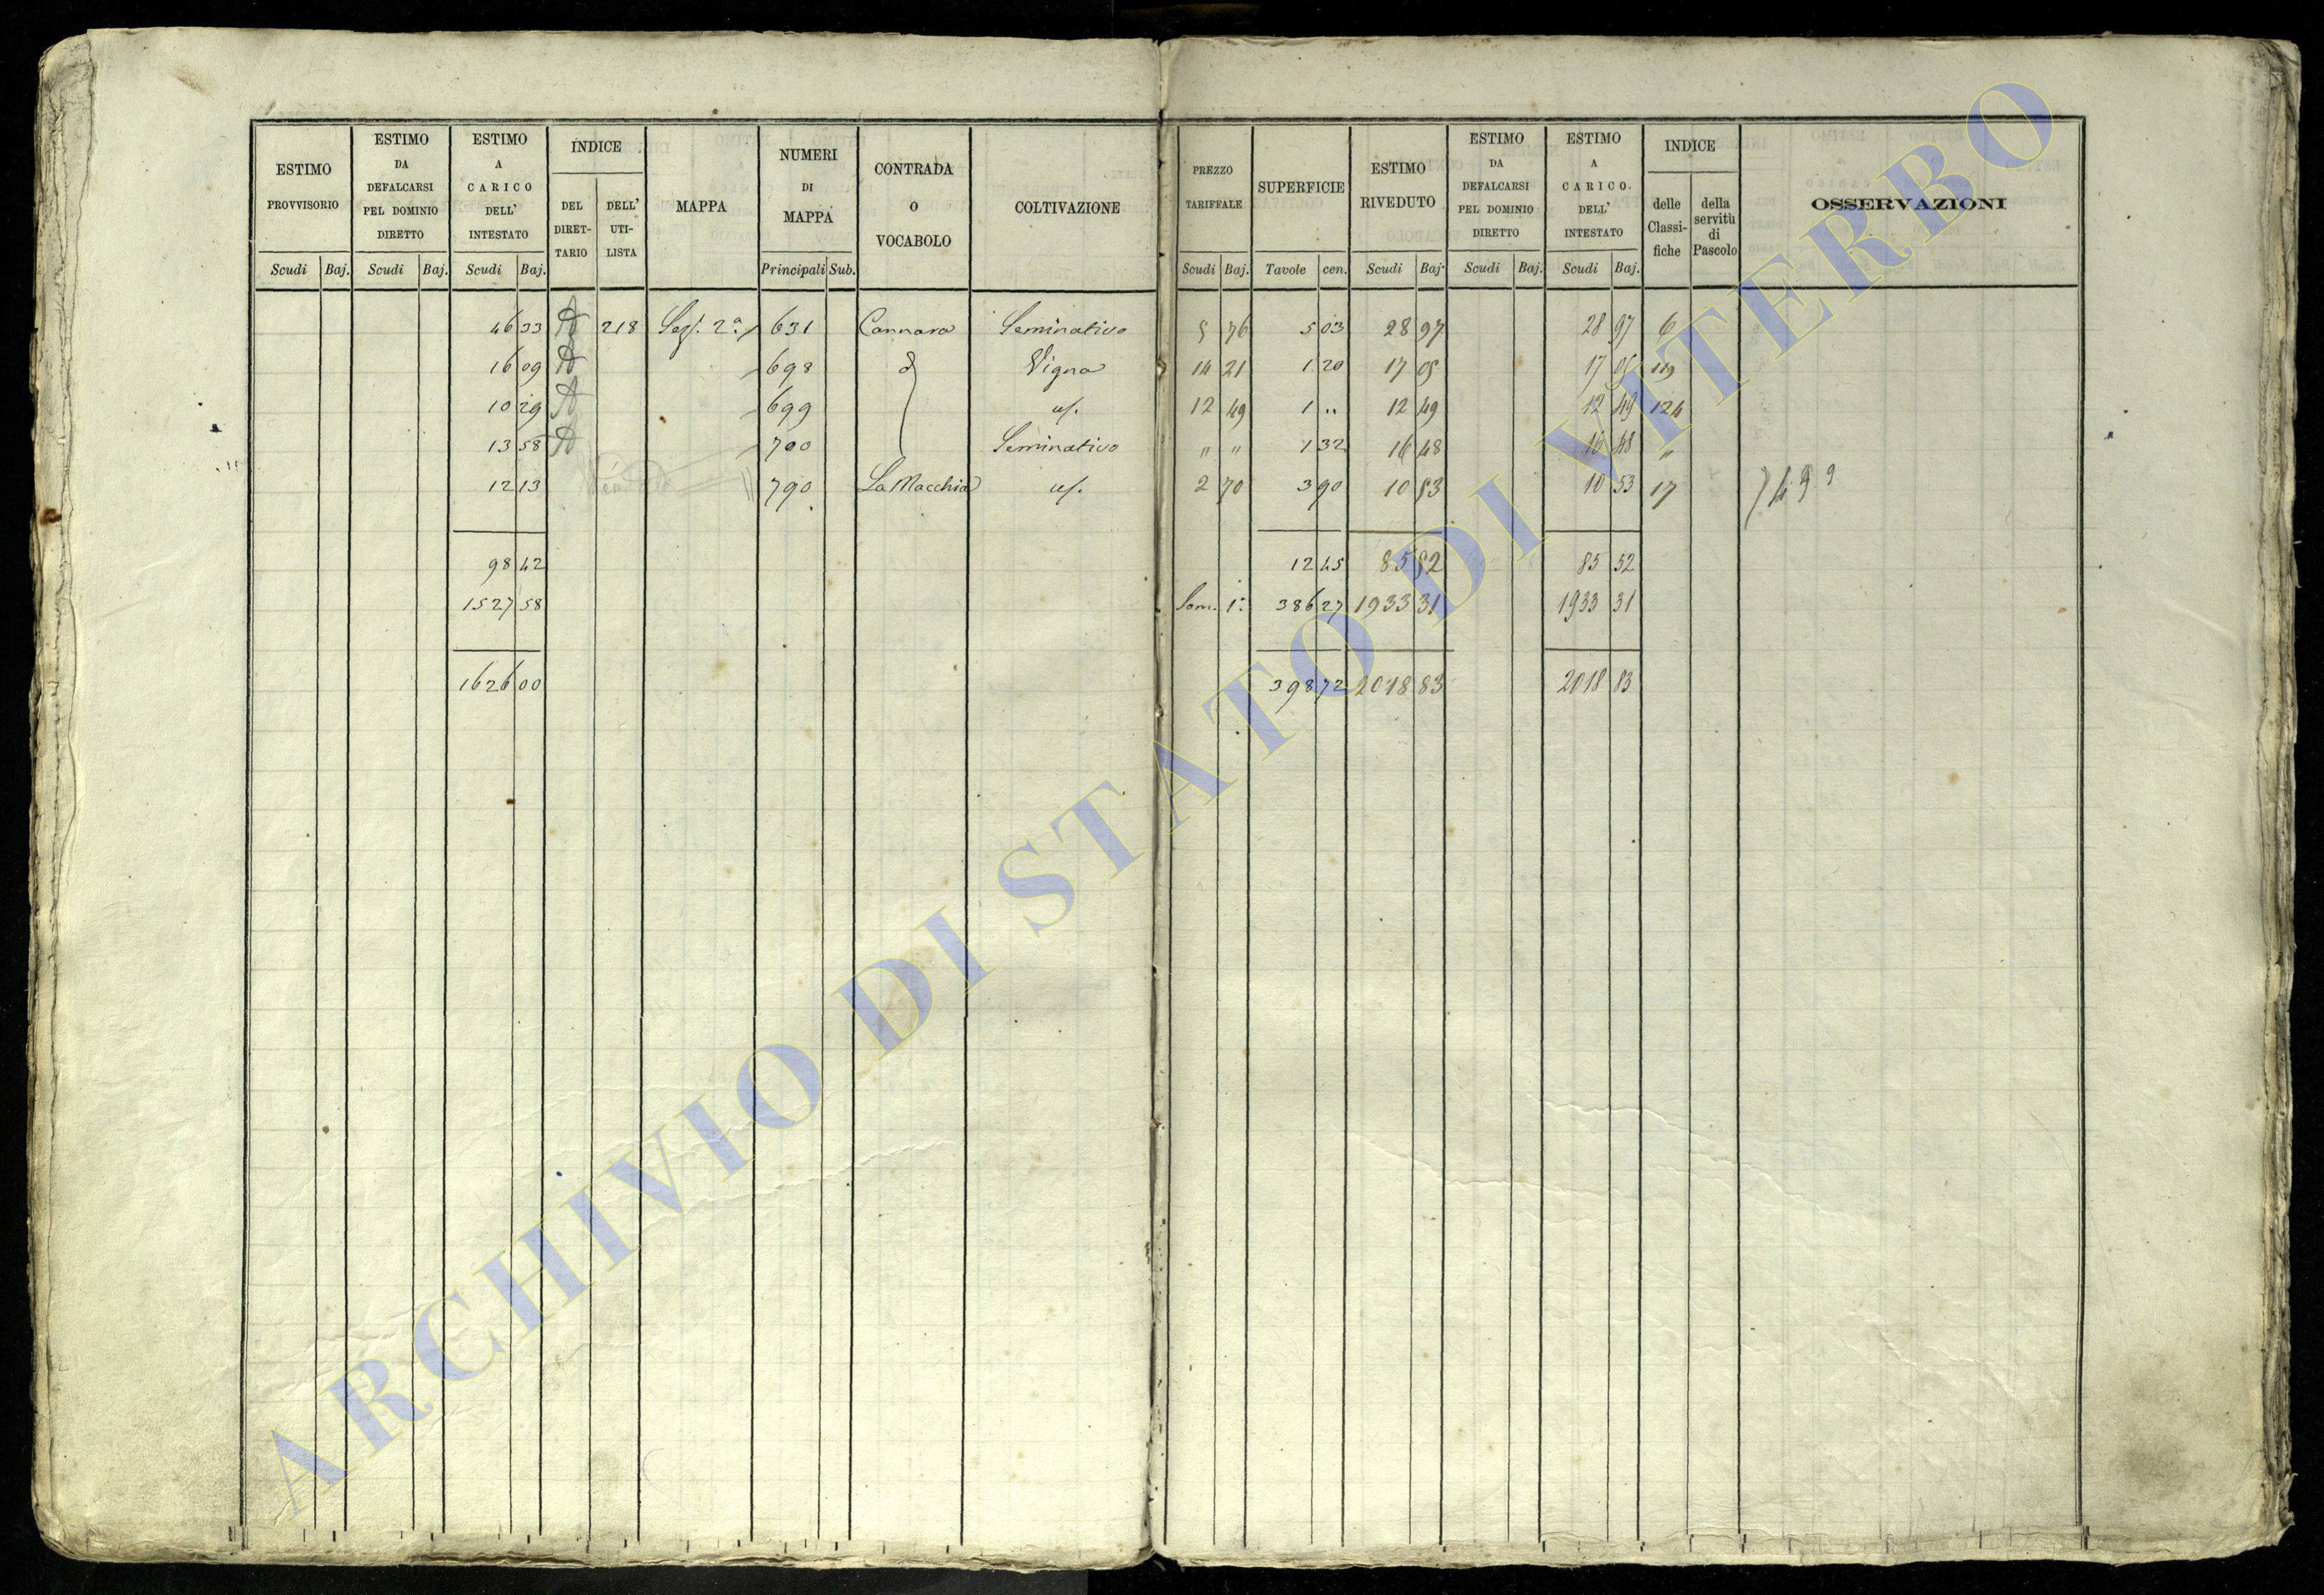 ESTIMO PROVVISORIO
ESTIMO DA DEFALCARSI PEL DOMINIO DIRETTO
ESTIMO A CARICO DELL' INTESTATO
INDICE
DEL DIRET-TARIO
DELL' UTI-LISTA
MAPPA
NUMERI DI MAPPA
CONTRADA O VOCABOLO
COLTIVAZIONE
PREZZO TARIFFALE
SUPERFICIE
ESTIMO RIVEDUTO
ESTIMO DA DEFALCARSI PEL DOMINIO DIRETTO
ESTIMO A CARICO. DELL' INTESTATO
INDICE
delle Classi-fiche
della servitù di Pascolo
OSSERVAZIONI
Scudi Baj. Scudi Baj. Scudi Baj. Principali Sub. Scudi Baj. Tavole cen. Scudi Baj. Scudi Baj. Scudi Baj.
46 33 218 Sez. 2a 631 Cannara Seminativo 5 76 5 03 28 97 28 97 6
16 09 698 Vigna 14 21 1 20 17 05 17 05 119
10 29 699 id. 12 49 1 " 12 49 12 49 124
13 58 700 Seminativo " " 1 32 16 48 16 48 "
12 13 790 La Macchia id. 2 70 3 90 10 53 10 53 17
98 42 12 45 85 52 85 52
1527 58 Som. 1a 386 27 1933 31 1933 31
1626 00 398 72 2018 83 2018 83
ARCHIVIO DI STATO DI VITERBO